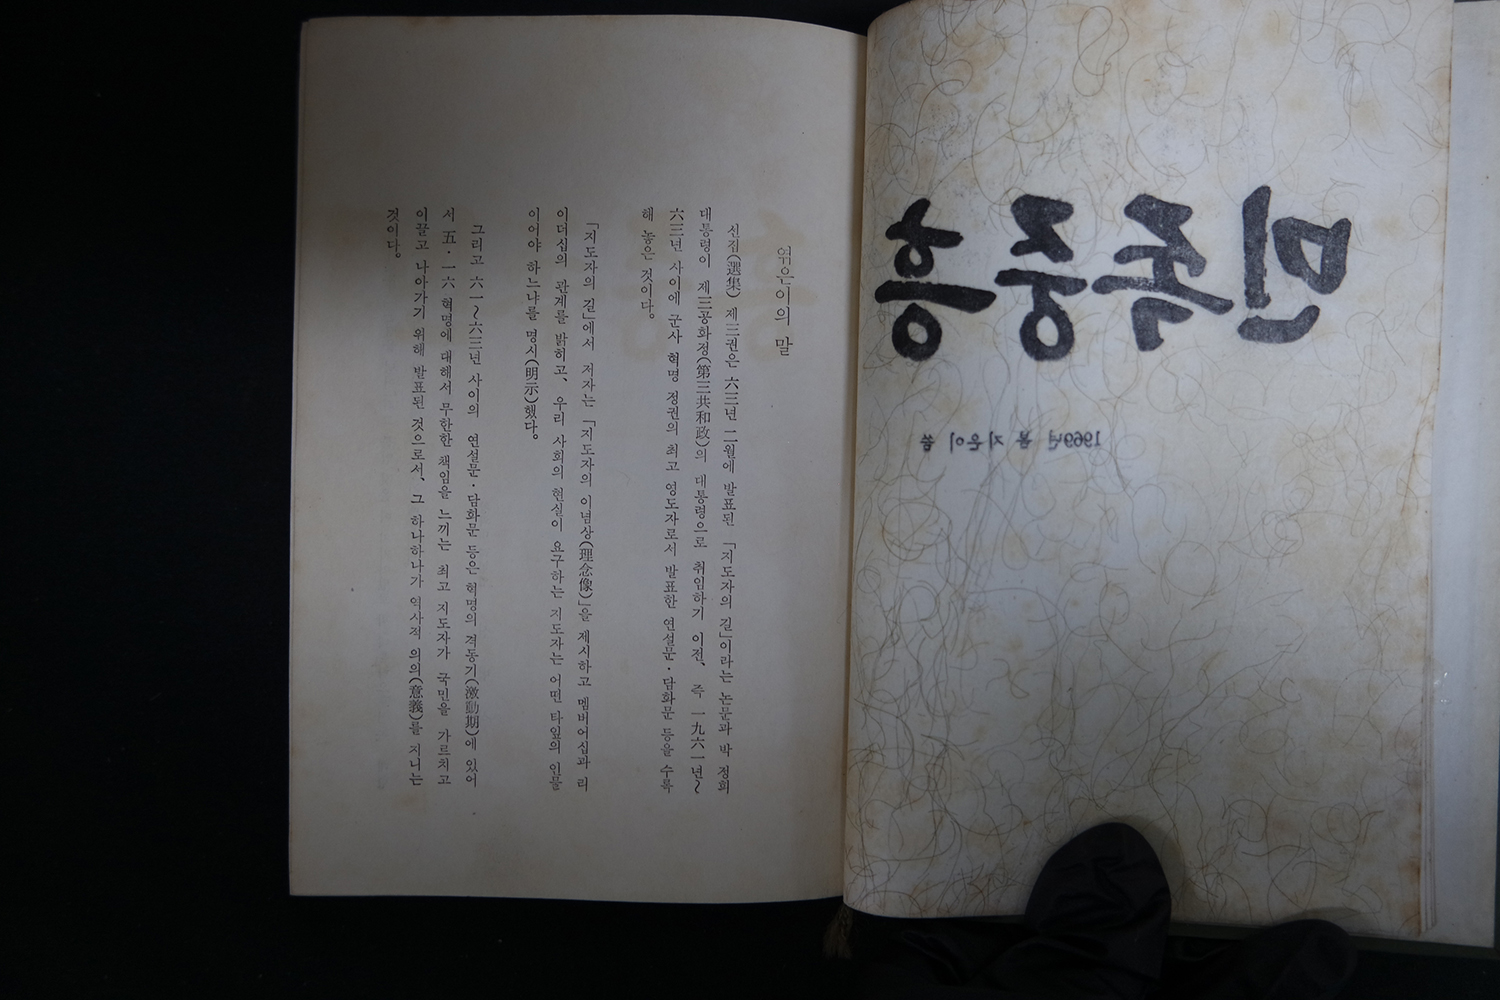 민족중흥
1969년 봄 지은이 씀
엮은이의 말
선집(選集) 제三권은 六三년 二월에 발표된 「지도자의 길」이라는 논문과 박 정희
대통령이 제三공화정(第三共和政)의 대통령으로 취임하기 이전, 즉 一九六一년~
六三년 사이에 군사 혁명 정권의 최고 영도자로서 발표한 연설문·담화문 등을 수록
해 놓은 것이다.
「지도자의 길」에서 저자는 「지도자의 이념상(理念像)」을 제시하고 멤버어십과 리
이더십의 관계를 밝히고, 우리 사회의 현실이 요구하는 지도자는 어떤 타잎의 인물
이어야 하느냐를 명시(明示)했다.
그리고 六一~六三년 사이의 연설문·담화문 등은 혁명의 격동기(激動期)에 있어
서 五·一六 혁명에 대해서 무한한 책임을 느끼는 최고 지도자가 국민을 가르치고
이끌고 나아가기 위해 발표된 것으로서, 그 하나하나가 역사적 의의(意義)를 지니는
것이다.